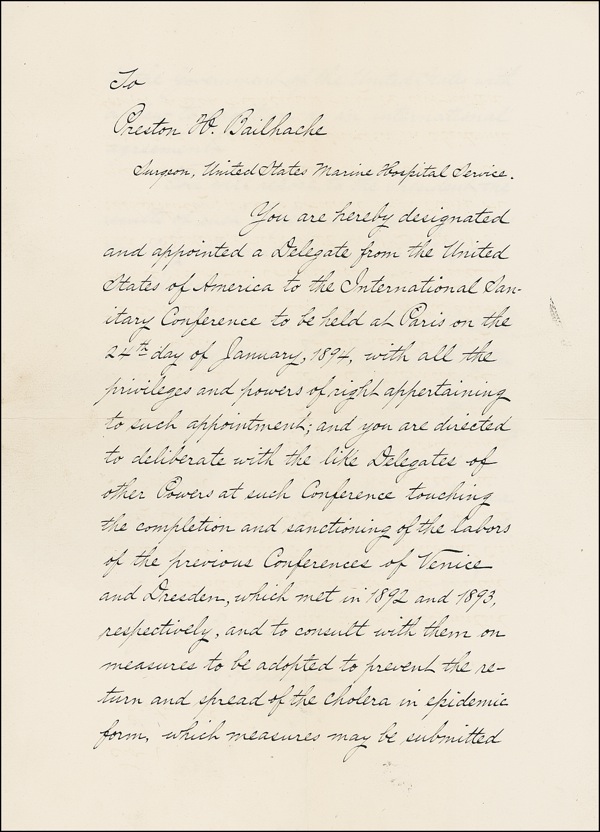 To
Preston H. Bailhache
Surgeon, United States Marine Hospital Service.
You are hereby designated
and appointed a Delegate from the United
States of America to the International San-
itary Conference to be held at Paris on the
24th day of January, 1894, with all the
privileges and powers of right appertaining
to such appointment; and you are directed
to deliberate with the like Delegates of
other Powers at such Conference touching
the completion and sanctioning of the labors
of the previous Conferences of Venice
and Dresden, which met in 1892 and 1893,
respectively, and to consult with them on
measures to be adopted to prevent the re-
turn and spread of the cholera in epidemic
form, which measures may be submitted